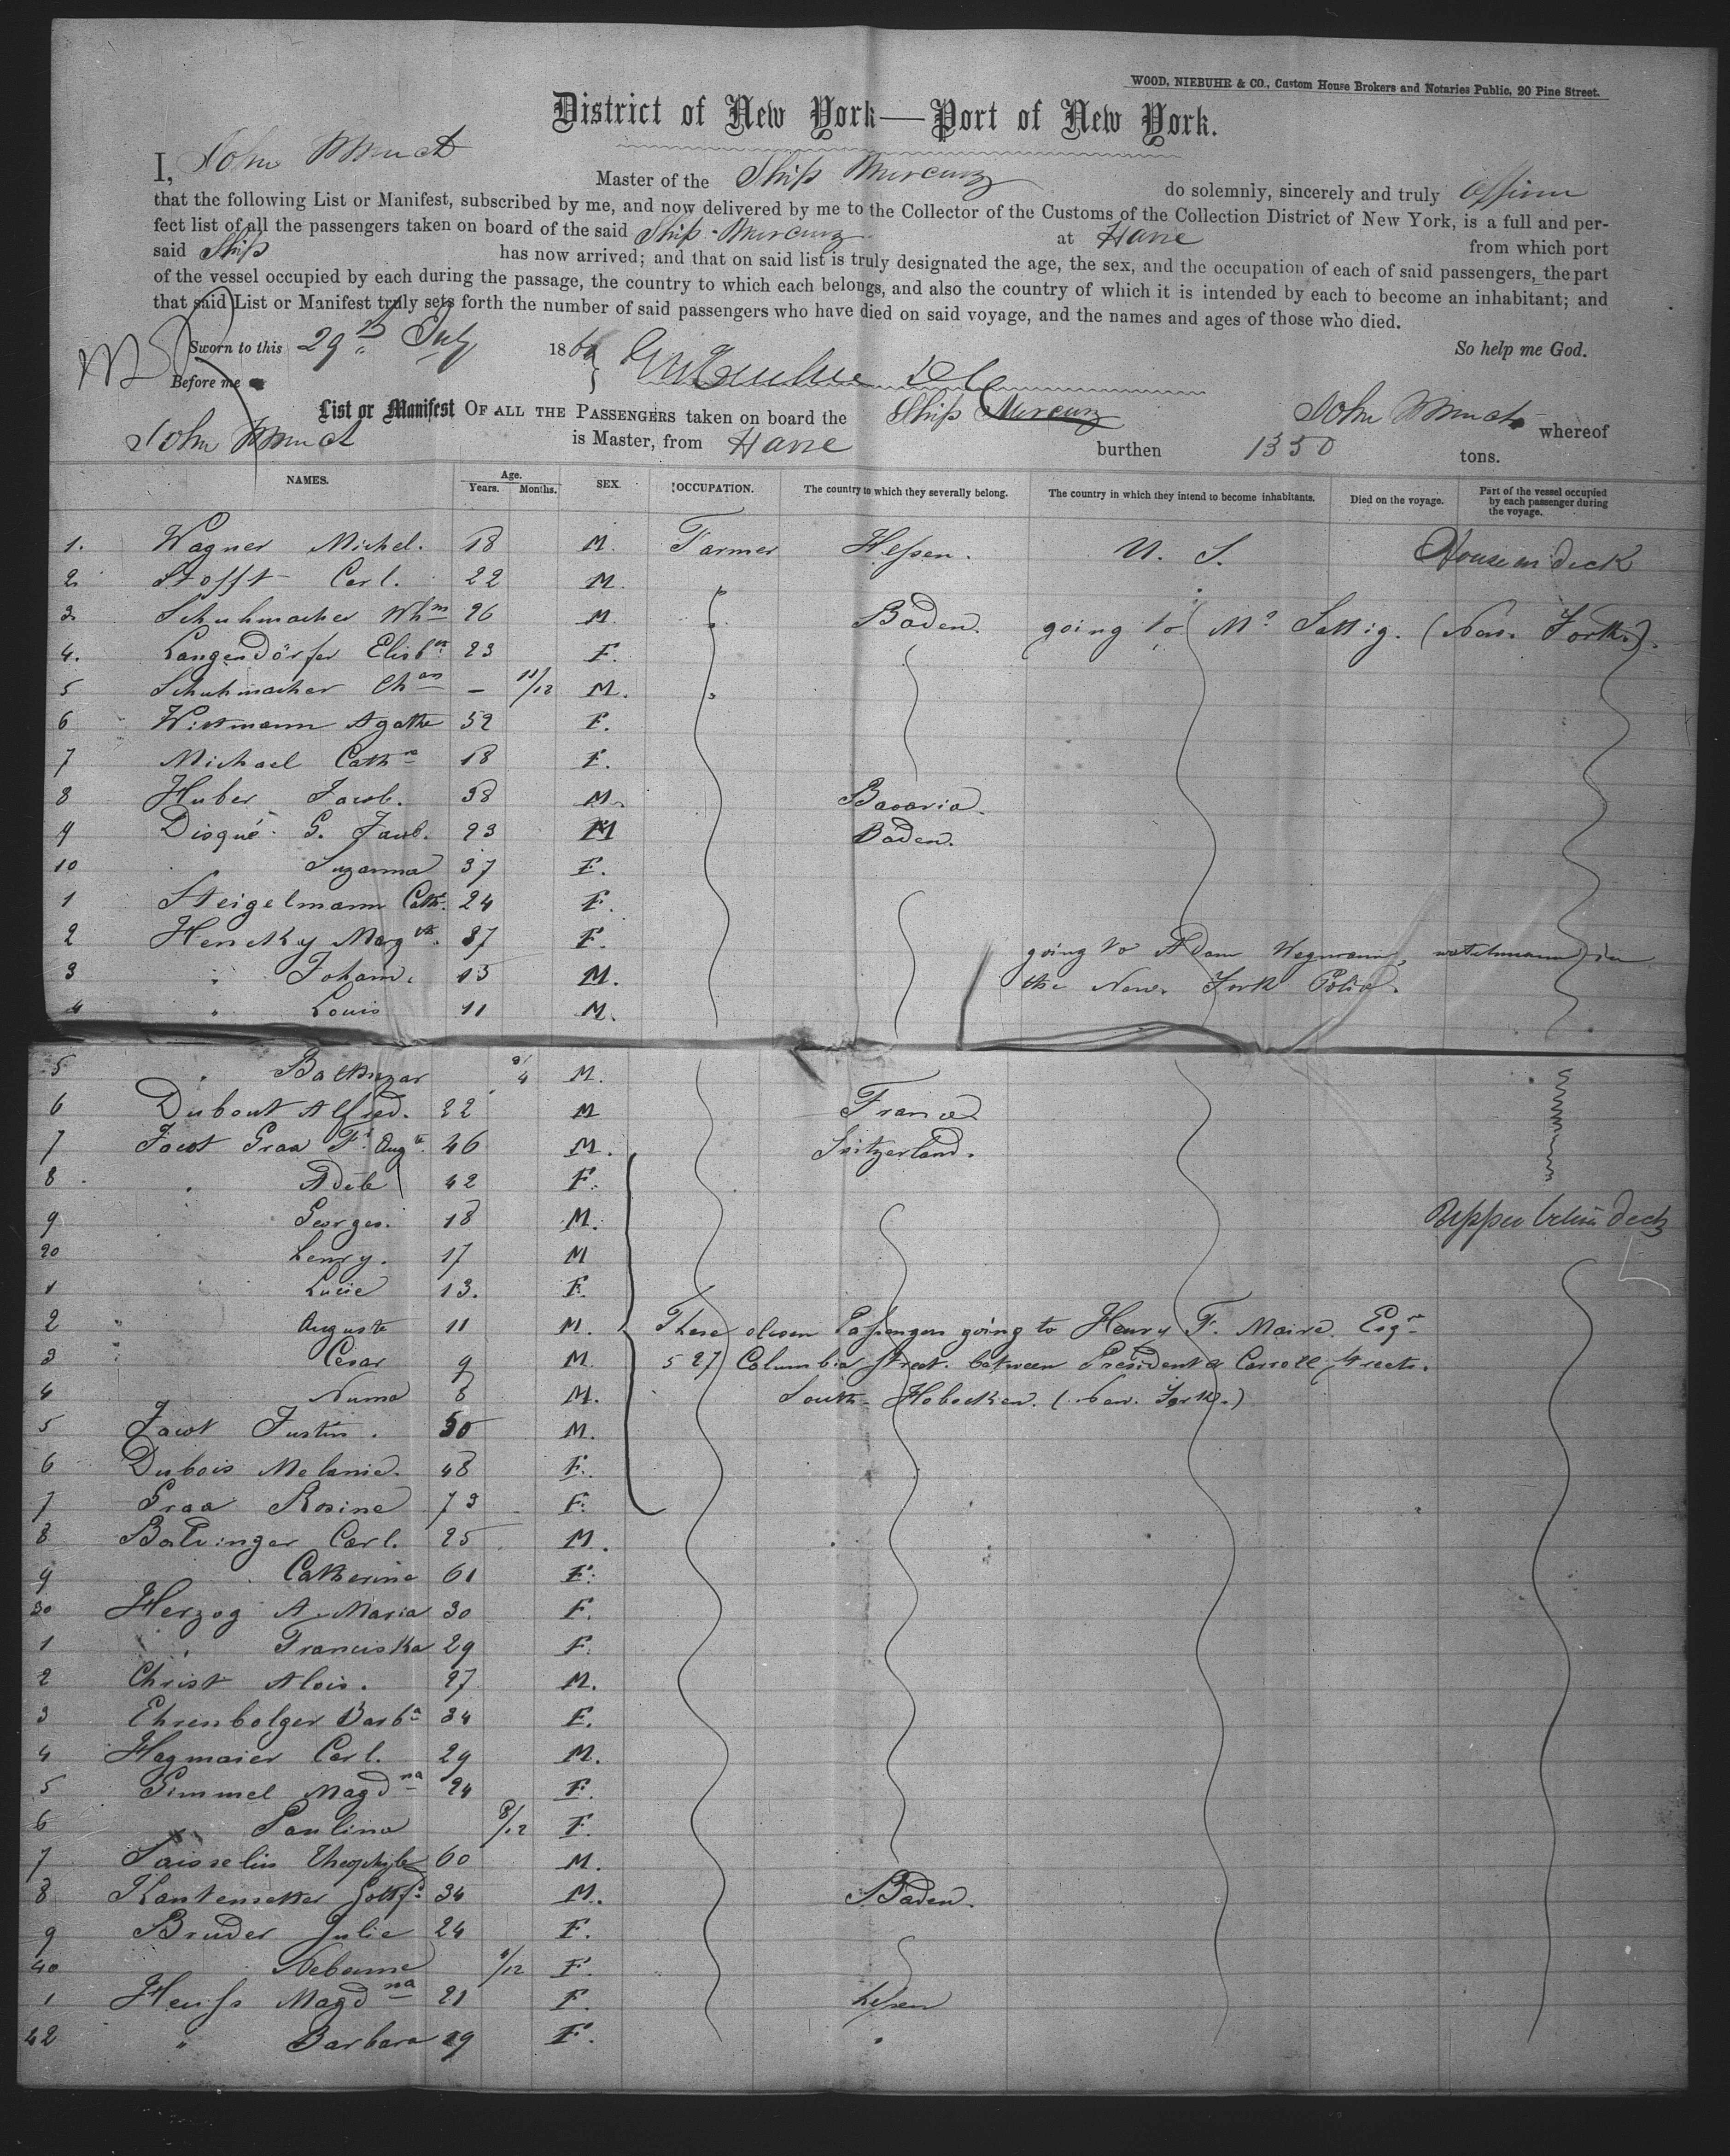 WOOD, NIEBUHR & CO., Custom House Brokers and Notaries Public, 20 Pine Street.
District of New York—Port of New York.
I, John Master of the Ship Mercury do solemnly, sincerely and truly affirm
that the following List or Manifest, subscribed by me, and now delivered by me to the Collector of the Customs of the Collection District of New York, is a full and per-
fect list of all the passengers taken on board of the said Ship Mercury at Havre from which port
said Ship has now arrived; and that on said list is truly designated the age, the sex, and the occupation of each of said passengers, the part
of the vessel occupied by each during the passage, the country to which each belongs, and also the country of which it is intended by each to become an inhabitant; and
that said List or Manifest truly sets forth the number of said passengers who have died on said voyage, and the names and ages of those who died.
Sworn to this 29th July 186 So help me God.
Before me
List or Manifest OF ALL THE PASSENGERS taken on board the Ship Mercury John whereof
John is Master, from Havre burthen 1350 tons.
NAMES. Age. Years. Months. SEX. OCCUPATION. The country to which they severally belong. The country in which they intend to become inhabitants. Died on the voyage. Part of the vessel occupied by each passenger during the voyage.
1. Wagner Michel. 18 M. Farmer Hessen. U. S. House on deck
2. Stofft Carl. 22 M.
3. Schuhmacher Whm 26 M. " Baden. going to (Mr Sattig. (New. York.)
4. Langendörfer Elisbth 23 F.
5 Schuhmacher Chas – 11/12 M. "
6 Wittmann Agathe 52 F.
7 Michael Cathne 18 F.
8 Huber Jacob. 38 M. Bavaria.
9 Disqué G. Jacob. 23 M Baden.
10 Suzanna 37 F.
1 Steigelmann Cath. 24 F.
2 Henchy Margth. 37 F. going to Adam Wegmann, watchmann in
3 " Johann. 13 M. the New. York Police.
4 " Louis 11 M.
5 " Balthazar 3/4 M.
6 Dubout Alfred. 22 M France
7 Jacot Graa F. Augte 46 M. Switzerland.
8 " Adele 42 F.
9 Georges. 18 M. Upper between deck
20 henry. 17 M
1 Lucie 13. F.
2 " Auguste 11 M. These eleven Passengers going to Henry F. Maire. Esqre
3 " Cesar 9 M 527 Columbia Street. between President & Carroll Streets.
4 Numa 8 M. South-Hobocken. (New. York.)
5 Jacot Justin. 50 M.
6 Dubois Melanie. 48 F.
7 Graa Rosine 73 F.
8 Balvinger Carl. 25 M.
9 Catherine 61 F.
30 Herzog A. Maria 30 F.
1 " Franciska 29 F.
2 Christ Alois. 27 M.
3 Ehrenbolger Barba 34 F.
4 Hagmaier Carl. 29 M.
5 Gimmel Magdna 24 F.
6 " Paulina 8/12 F.
7 Saisselin Theophyle 60 M.
8 Gottfd 34 M. Baden.
9 Bruder Julie 24 F.
40 /12 F.
1 Heuss Magdna 21 F. hessen
42 " Barbara 19 F. "